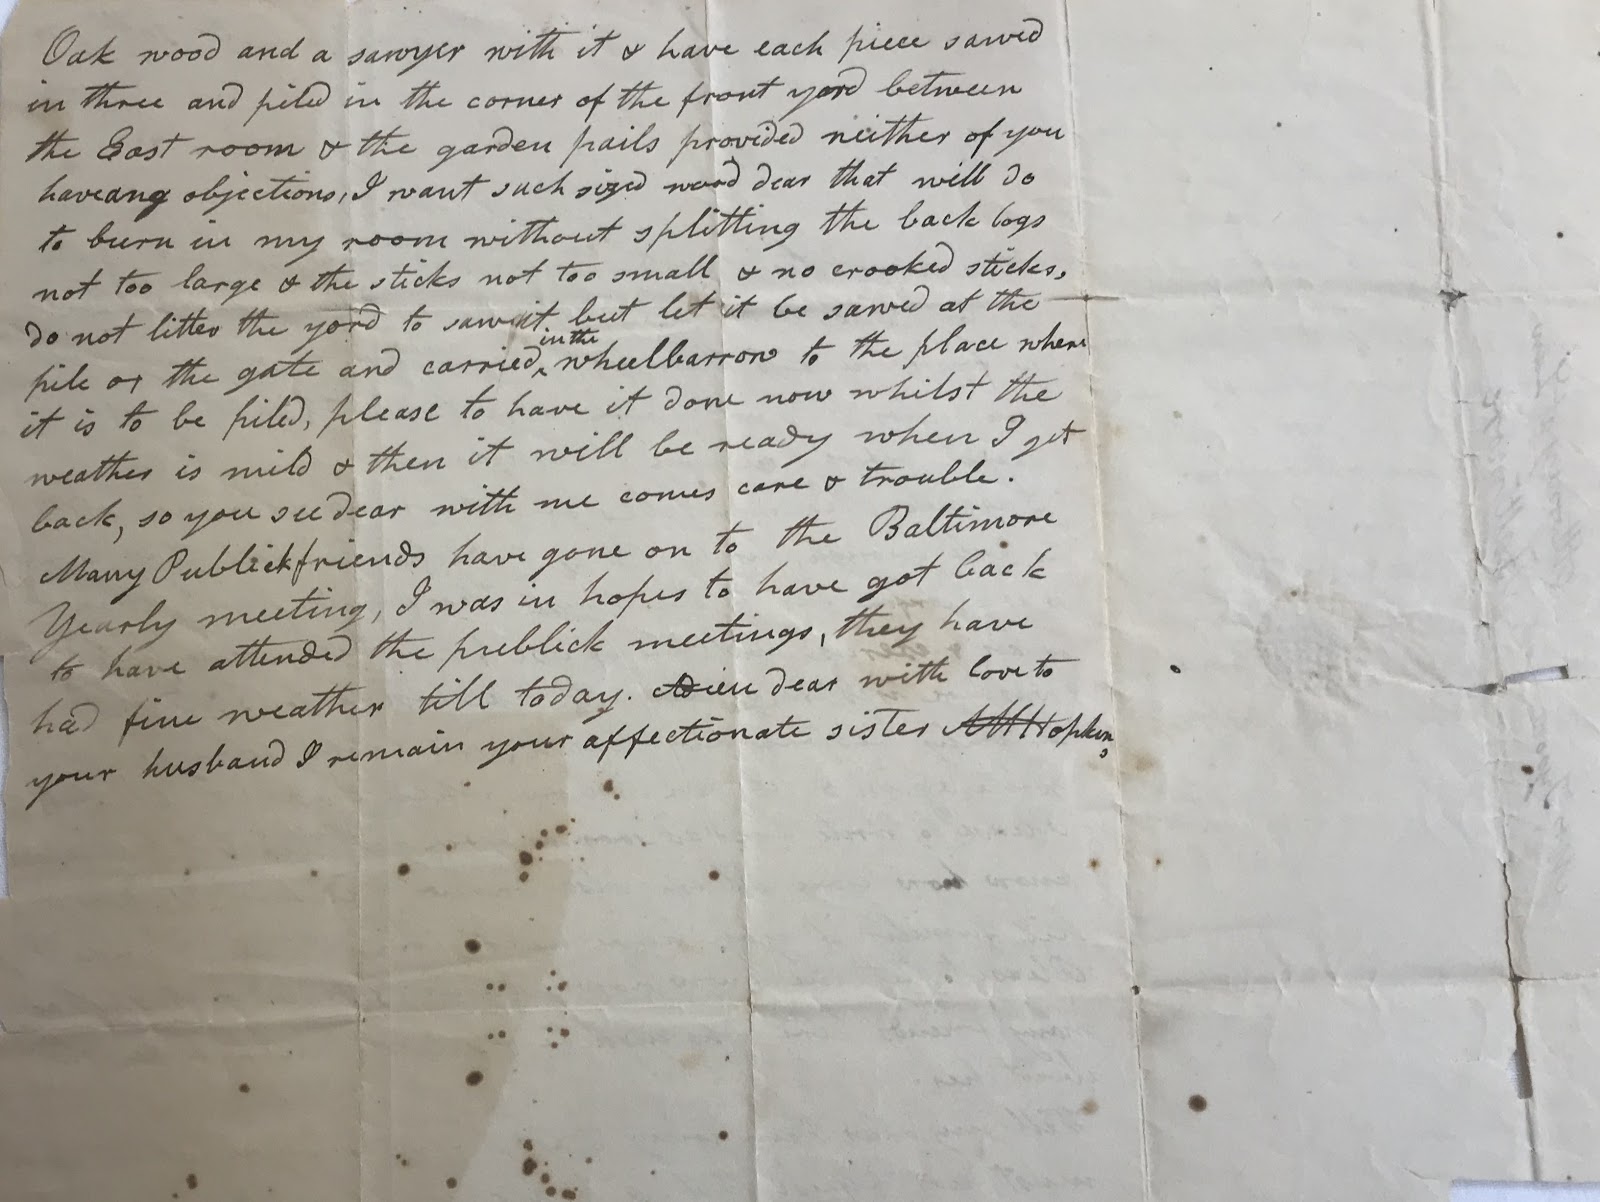 Oak wood and a sawyer with it & have each piece sawed
in three and piled in the corner of the front yard between
the East room & the garden pails provided neither of you
have any objections, I want such sized wood dear that will do
to burn in my room without splitting the back logs
not too large & the sticks not too small & no crooked sticks,
do not litter the yard to saw it but let it be sawed at the
pile or the gate and carried in the wheelbarrow to the place where
it is to be piled, please to have it done now whilst the
weather is mild & then it will be ready when I get
back, so you see dear with me comes care & trouble.
Many Publick friends have gone on to the Baltimore
Yearly meeting, I was in hopes to have got back
to have attended the publick meetings, they have
had fine weather till today. Adieu dear with love to
your husband I remain your affectionate sister A W Hopkins